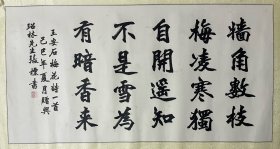 墙角数枝
梅凌寒獨
自開遥知
不是雪為
有暗香来
王安石梅花诗一首
己巳年夏月晴興
绍林先生張煌書